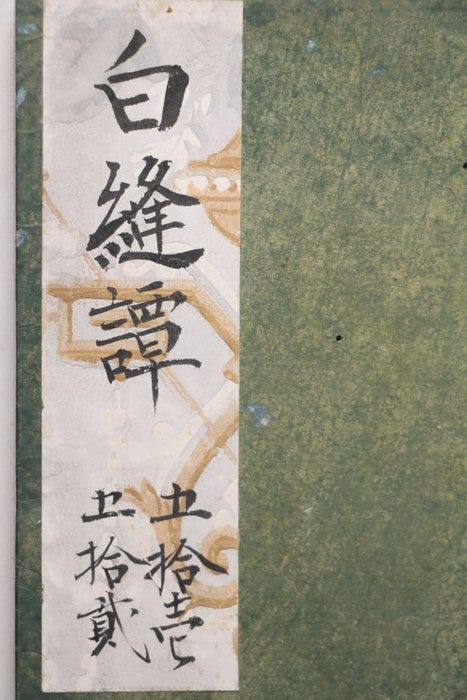 白縫譚
五拾壱
五拾貳